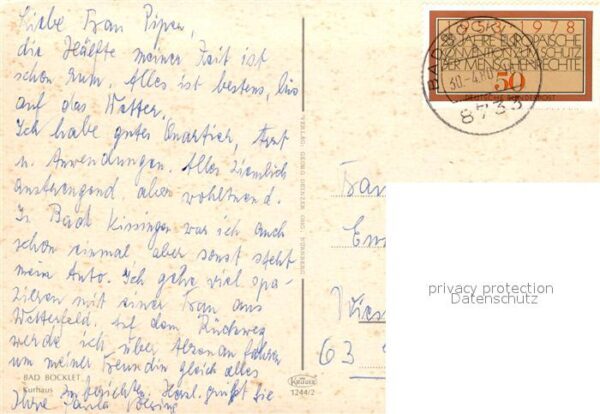 Liebe Frau Piper,
die Hälfte meiner Zeit ist
schon rum. Alles ist bestens, bis
auf das Wetter.
Ich habe gutes Quartier, Arzt
u. Anwendungen. Alles ziemlich
anstrengend, aber wohltuend.
In Bad Kissingen war ich auch
schon einmal aber sonst steht
mein Auto. Ich gehe viel spa-
zieren mit einer Frau aus
Wetterfeld. Auf dem Rückweg
werde ich über Alzenau fahren
um meiner Freundin gleich alles
zu berichten. Herzl. grüßt Sie
Ihre
BAD BOCKLET
Kurhaus
KRÜGER
1244/2
1953 1978
25 JAHRE EUROPÄISCHE
KONVENTION ZUM SCHUTZ
DER MENSCHENRECHTE
50
DEUTSCHE BUNDESPOST
BAD BOCKLET
30.-4.
8733
Frau
63
privacy protection
Datenschutz